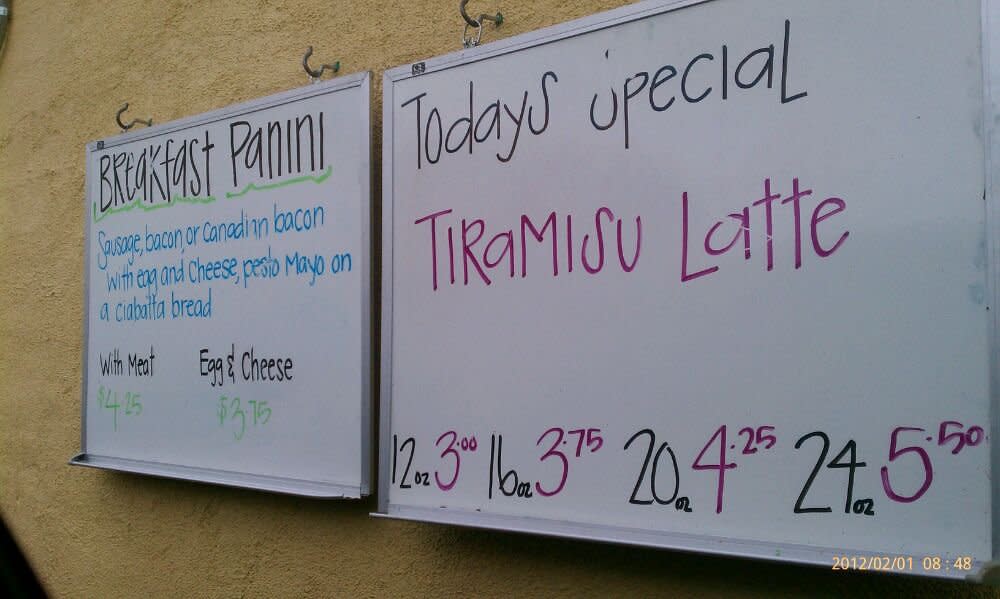 BREAKfast PANINI
Sausage, bacon, or Canadian bacon
with egg and Cheese, pesto Mayo on
a ciabatta bread
With Meat Egg & Cheese
$4.25 $3.75
Todays special
TIRAMISU Latte
12oz 3.00 16oz 3.75 20oz 4.25 24oz 5.50
2012/02/01 08:48